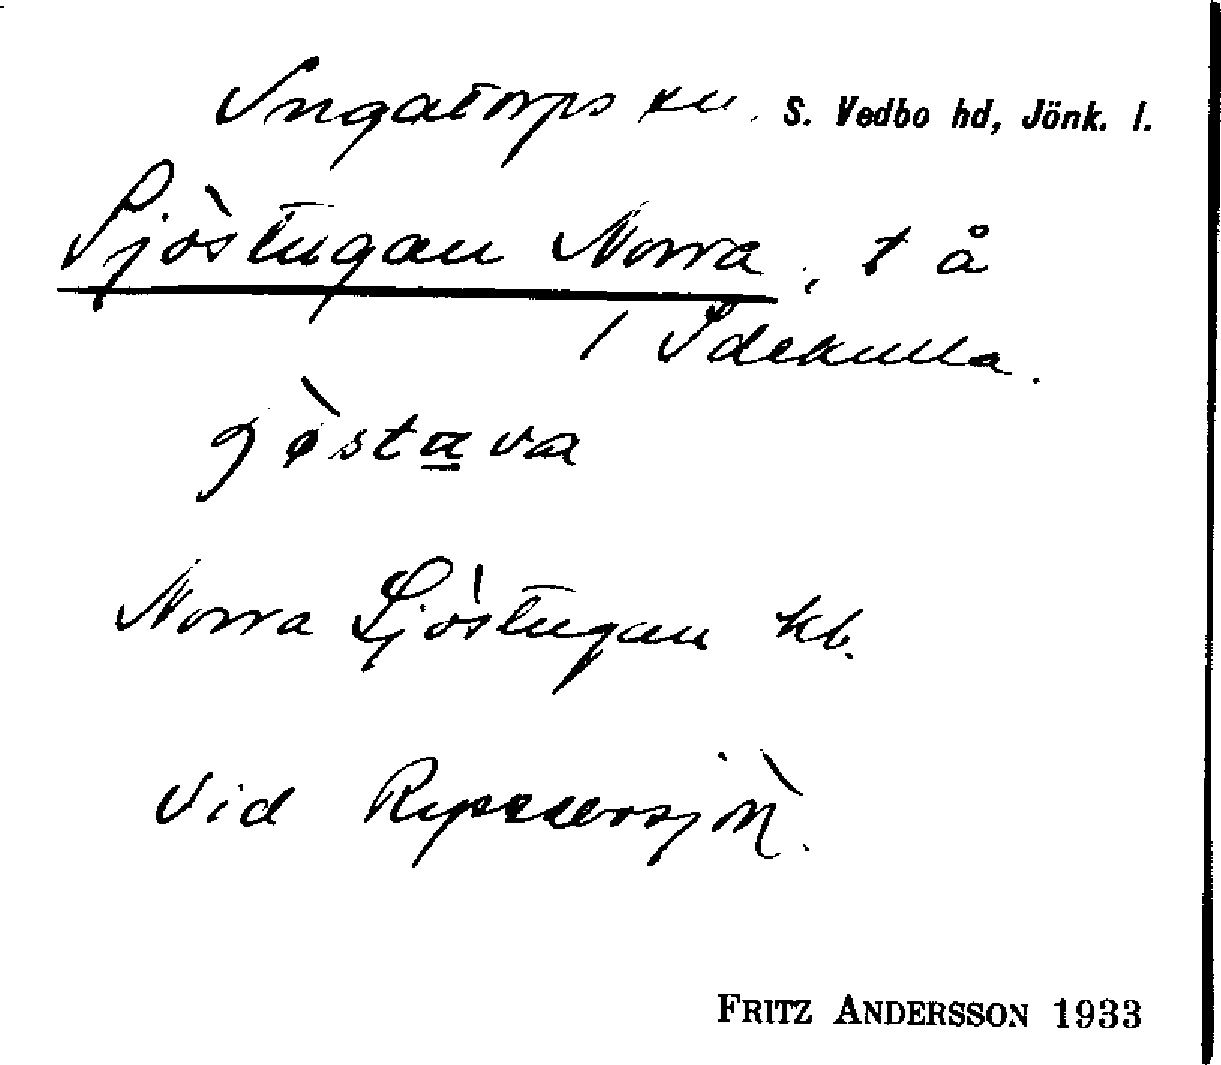 Ingatorps sn. S. Vedbo hd, Jönk. l.
Sjöstugan Norra, t å
1 Idekulla.
jö̀stava
Norra Sjöstugan kb.
Vid
FRITZ ANDERSSON 1933